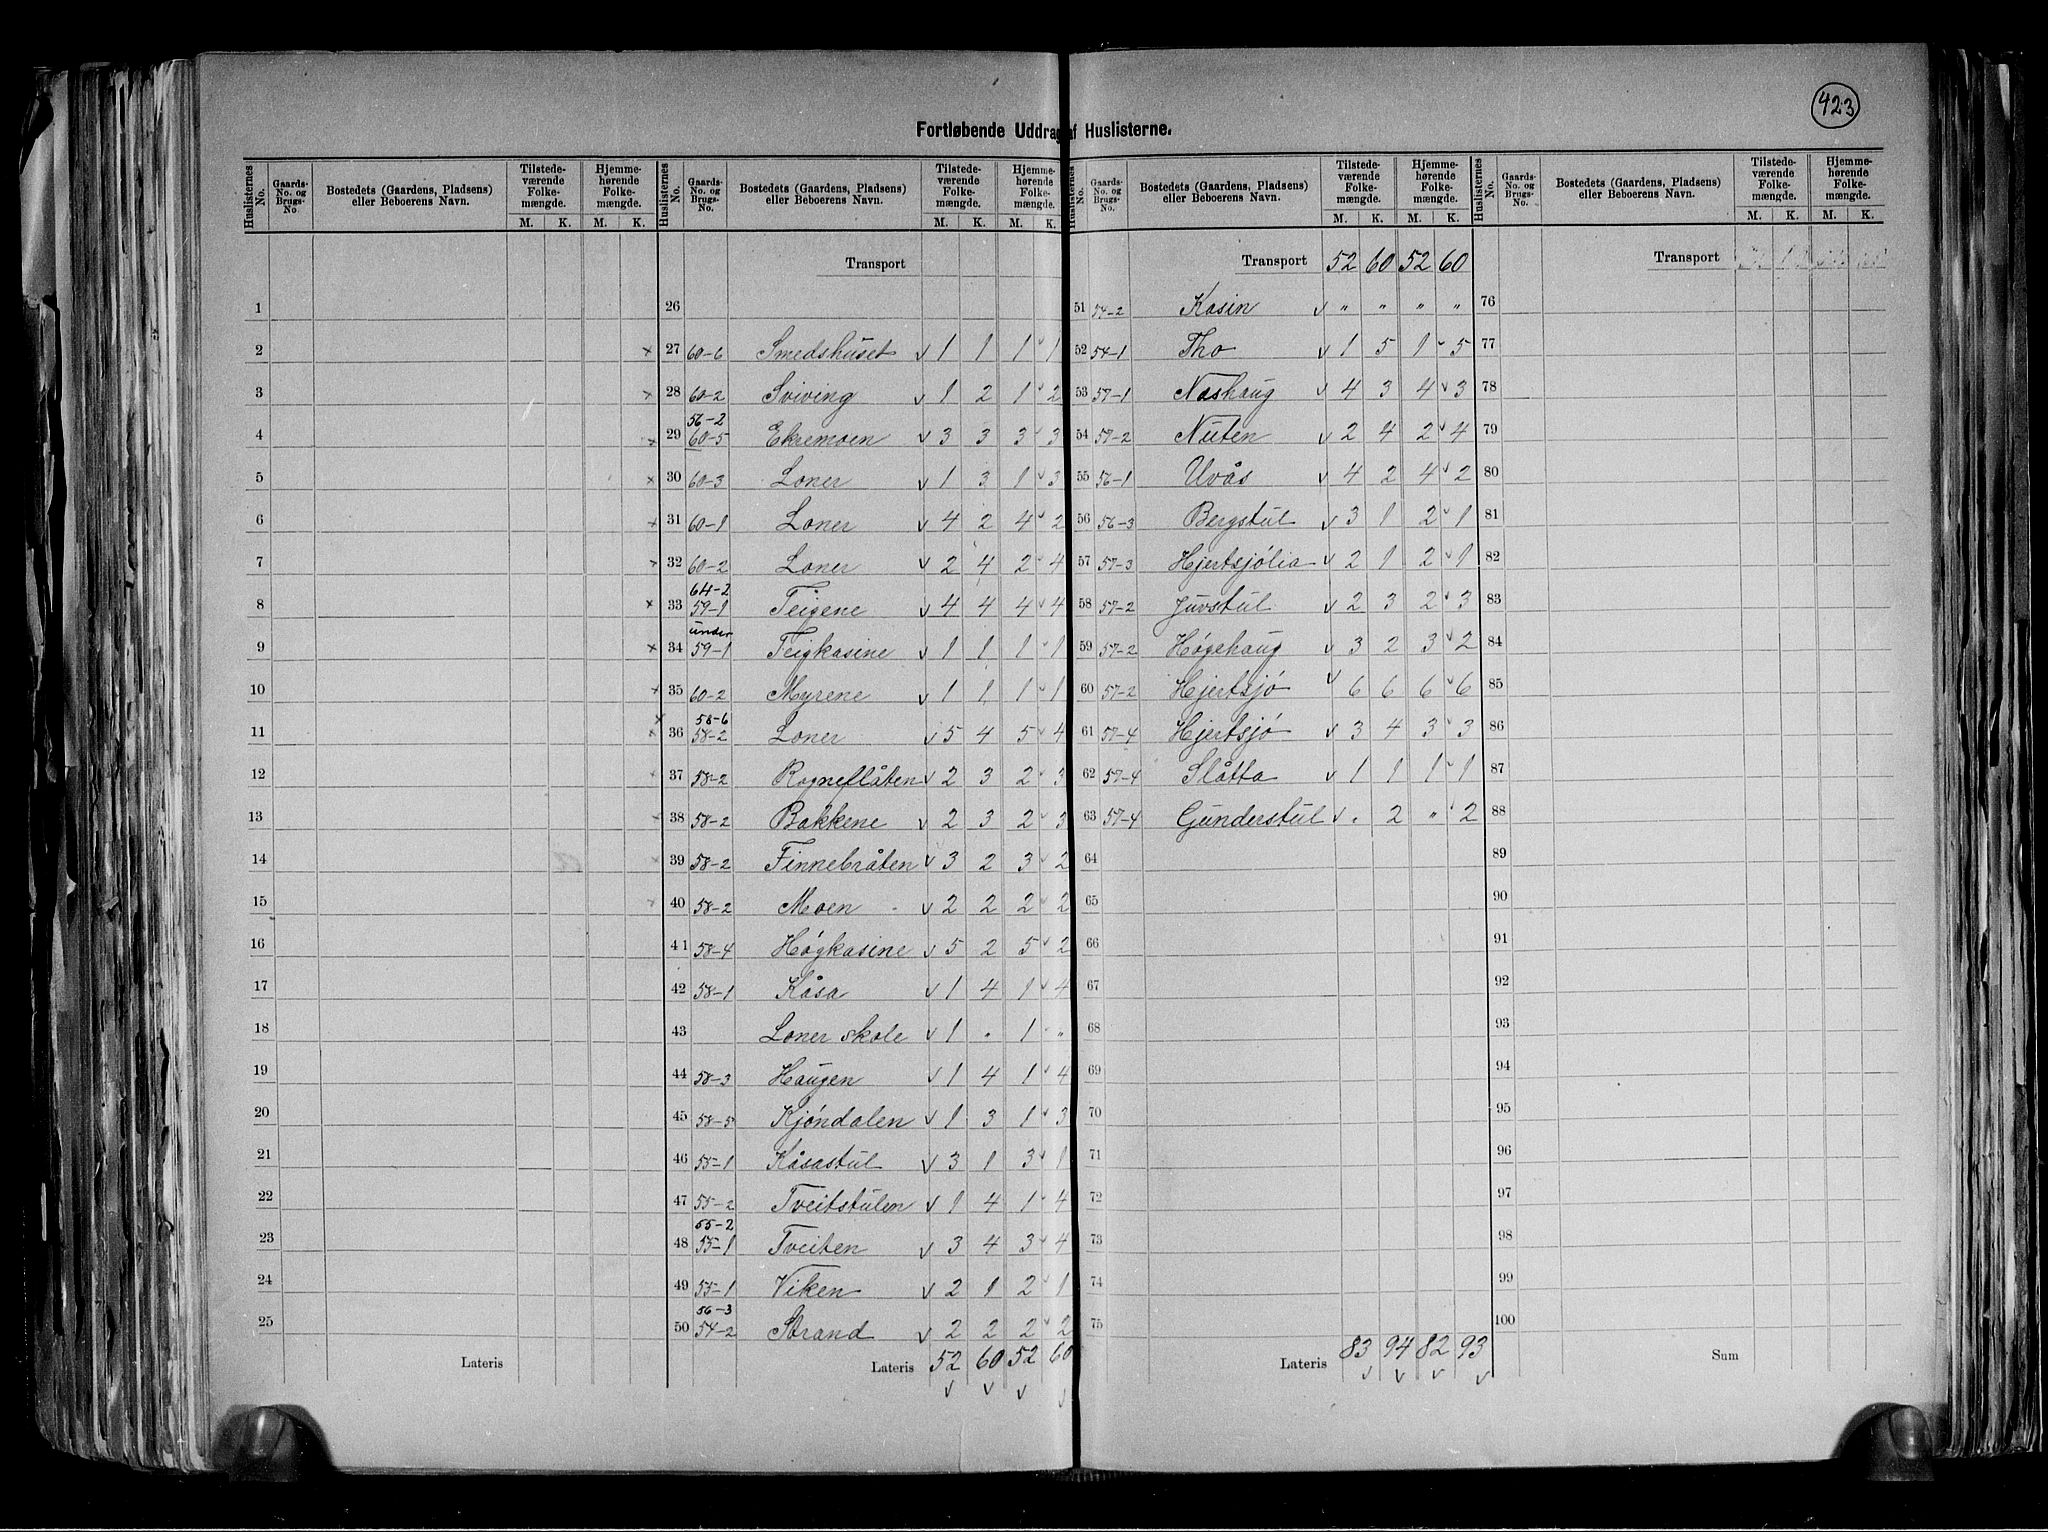 423
Fortløbende Uddrag af Huslisterne.
Huslisternes No. Gaards-No. og Brugs-No. Bostedets (Gaardens, Pladsens) eller Beboerens Navn. Tilstedeværende Folkemængde. M. K. Hjemmehørende Folkemængde. M. K.
1
2
3
4
5
6
7
8
9
10
11
12
13
14
15
16
17
18
19
20
21
22
23
24
25
Lateris
Huslisternes No. Gaards-No. og Brugs-No. Bostedets (Gaardens, Pladsens) eller Beboerens Navn. Tilstedeværende Folkemængde. M. K. Hjemmehørende Folkemængde. M. K.
Transport
26
× 27 60-6 Smedshuset v 1 1 1 v 1
× 28 60-2 Sviving v 1 2 1 v 2
56-2
× 29 60-5 Ekremoen v 3 3 3 v 3
× 30 60-3 Loner v 1 3 1 v 3
× 31 60-1 Loner v 4 2 4 v 2
× 32 60-2 Loner v 2 4 2 v 4
64-2
× 33 59-1 Teigene v 4 4 4 v 4
under
× 34 59-1 Teigkasine v 1 1 1 v 1
× 35 60-2 Myrene v 1 1 1 v 1
× 58-6
× 36 58-2 Loner v 5 4 5 v 4
× 37 58-2 Rogneflåten v 2 3 2 v 3
× 38 58-2 Bakkene v 2 3 2 v 3
× 39 58-2 Finnebråten v 3 2 3 v 2
× 40 58-2 Moen v 2 2 2 v 2
41 58-4 Høgkasine v 5 2 5 v 2
42 58-1 Kåsa v 1 4 1 v 4
43 Loner skole v 1 " 1 v "
44 58-3 Haugen v 1 4 1 v 4
45 58-5 Kjøndalen v 1 3 1 v 3
46 55-1 Kåsastul v 3 1 3 v 1
47 55-2 Tveitstulen v 1 4 1 v 4
55-2
48 55-1 Tveiten v 3 4 3 v 4
49 55-1 Viken v 2 1 2 v 1
56-3
50 54-2 Strand v 2 2 2 v 2
Lateris 52 60 52 60
v v v v
Huslisternes No. Gaards-No. og Brugs-No. Bostedets (Gaardens, Pladsens) eller Beboerens Navn. Tilstedeværende Folkemængde. M. K. Hjemmehørende Folkemængde. M. K.
Transport 52 60 52 60
51 54-2 Kasin v " " " "
52 54-1 Tho v 1 5 1 v 5
53 57-1 Nashaug v 4 3 4 v 3
54 57-2 Nuten v 2 4 2 v 4
55 56-1 Uvås v 4 2 4 v 2
56 56-3 Bergstul v 3 1 2 v 1
57 57-3 Hjertsjølia v 2 1 2 v 1
58 57-2 Juvstul v 2 3 2 v 3
59 57-2 Høgehaug v 3 2 3 v 2
60 57-2 Hjertsjø v 6 6 6 v 6
61 57-4 Hjertsjø v 3 4 3 v 3
62 57-4 Slåtta v 1 1 1 v 1
63 57-4 Gunderstul v " 2 " v 2
64
65
66
67
68
69
70
71
72
73
74
75
Lateris 83 94 82 93
v v v v
Huslisternes No. Gaards-No. og Brugs-No. Bostedets (Gaardens, Pladsens) eller Beboerens Navn. Tilstedeværende Folkemængde. M. K. Hjemmehørende Folkemængde. M. K.
Transport
76
77
78
79
80
81
82
83
84
85
86
87
88
89
90
91
92
93
94
95
96
97
98
99
100
Sum